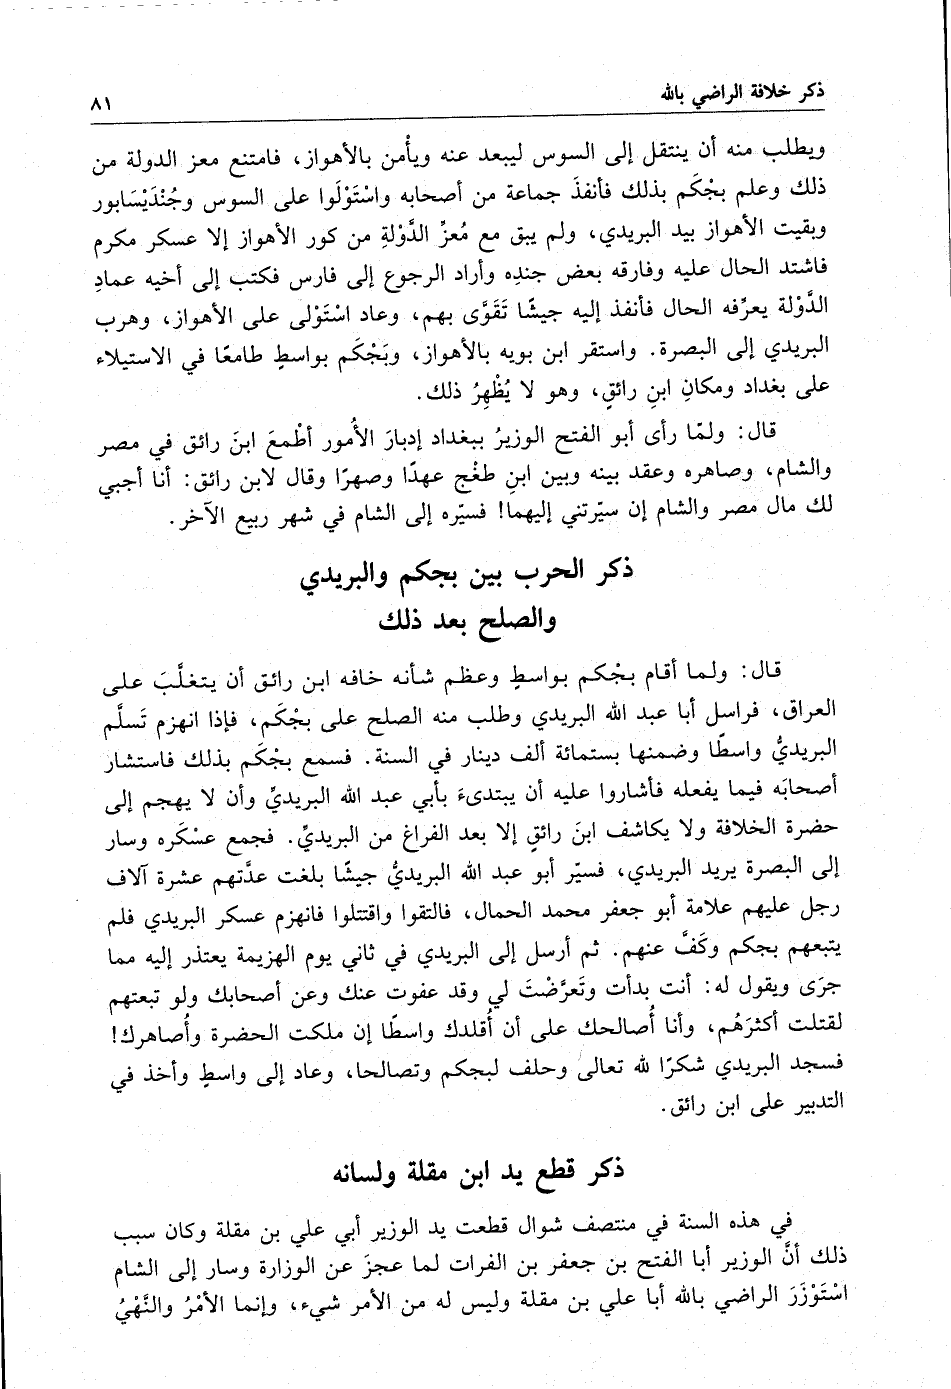 ذكر خلافة الراضي بالله
٨١
ويطلب منه أن ينتقل إلى السوس ليبعد عنه ويأمن بالأهواز، فامتنع معز الدولة من
ذلك وعلم بجْكَم بذلك فأنفذَ جماعة من أصحابه واسْتَوْلَوا على السوس وجُنْدَيْسَابور
وبقيت الأهواز بيد البريدي، ولم يبق مع مُعزِّ الدَّوْلةِ من كور الأهواز إلا عسكر مكرم
فاشتد الحال عليه وفارقه بعض جندِه وأراد الرجوع إلى فارس فكتب إلى أخيه عمادِ
الدَّوْلة يعرِّفه الحال فأنفذ إليه جيشًا تَقَوَّى بهم، وعاد اسْتَوْلى على الأهواز، وهرب
البريدي إلى البصرة. واستقر ابن بويه بالأهواز، وبَجْكَم بواسطٍ طامعًا في الاستيلاء
على بغداد ومكانِ ابنِ رائقٍ، وهو لا يُظْهِرُ ذلك.
قال: ولمّا رأى أبو الفتح الوزيرُ ببغداد إدبارَ الأُمور أطْمعَ ابنَ رائق في مصر
والشام، وصاهره وعقد بينه وبين ابنِ طغْج عهدًا وصهرًا وقال لابن رائق: أنا أجبي
لك مال مصر والشام إن سيّرتني إليهما! فسيّره إلى الشام في شهر ربيع الآخر.
ذكر الحرب بين بجكم والبريدي
والصلح بعد ذلك
قال: ولما أقام بجْكم بواسطٍ وعظم شأنه خافه ابن رائق أن يتغلَّبَ على
العراق، فراسل أبا عبد الله البريدي وطلب منه الصلح على بجْكَم، فإذا انهزم تَسلَّم
البريديُّ واسطًا وضمنها بستمائة ألف دينار في السنة. فسمع بجْكَم بذلك فاستشار
أصحابَه فيما يفعله فأشاروا عليه أن يبتدىءَ بأبي عبد الله البريديِّ وأن لا يهجم إلى
حضرة الخلافة ولا يكاشف ابنَ رائقٍ إلا بعد الفراغ من البريديِّ. فجمع عسْكَره وسار
إلى البصرة يريد البريدي، فسيّر أبو عبد الله البريديُّ جيشًا بلغت عدَّتهم عشرة آلاف
رجل عليهم علامة أبو جعفر محمد الحمال، فالتقوا واقتتلوا فانهزم عسكر البريدي فلم
يتبعهم بجكم وكَفَّ عنهم. ثم أرسل إلى البريدي في ثاني يوم الهزيمة يعتذر إليه مما
جرَى ويقول له: أنت بدأت وتَعرَّضْتَ لي وقد عفوت عنك وعن أصحابك ولو تبعتهم
لقتلت أكثرَهُم، وأنا أُصالحك على أن أُقلدك واسطًا إن ملكت الحضرة وأُصاهرك!
فسجد البريدي شكرًا لله تعالى وحلف لبجكم وتصالحا، وعاد إلى واسطٍ وأخذ في
التدبير على ابن رائق.
ذكر قطع يد ابن مقلة ولسانه
في هذه السنة في منتصف شوال قطعت يد الوزير أبي علي بن مقلة وكان سبب
ذلك أنَّ الوزير أبا الفتح بن جعفر بن الفرات لما عجزَ عن الوزارة وسار إلى الشام
اسْتَوْزَرَ الراضي بالله أبا علي بن مقلة وليس له من الأمر شيء، وإنما الأمْرُ والنَّهْيُ